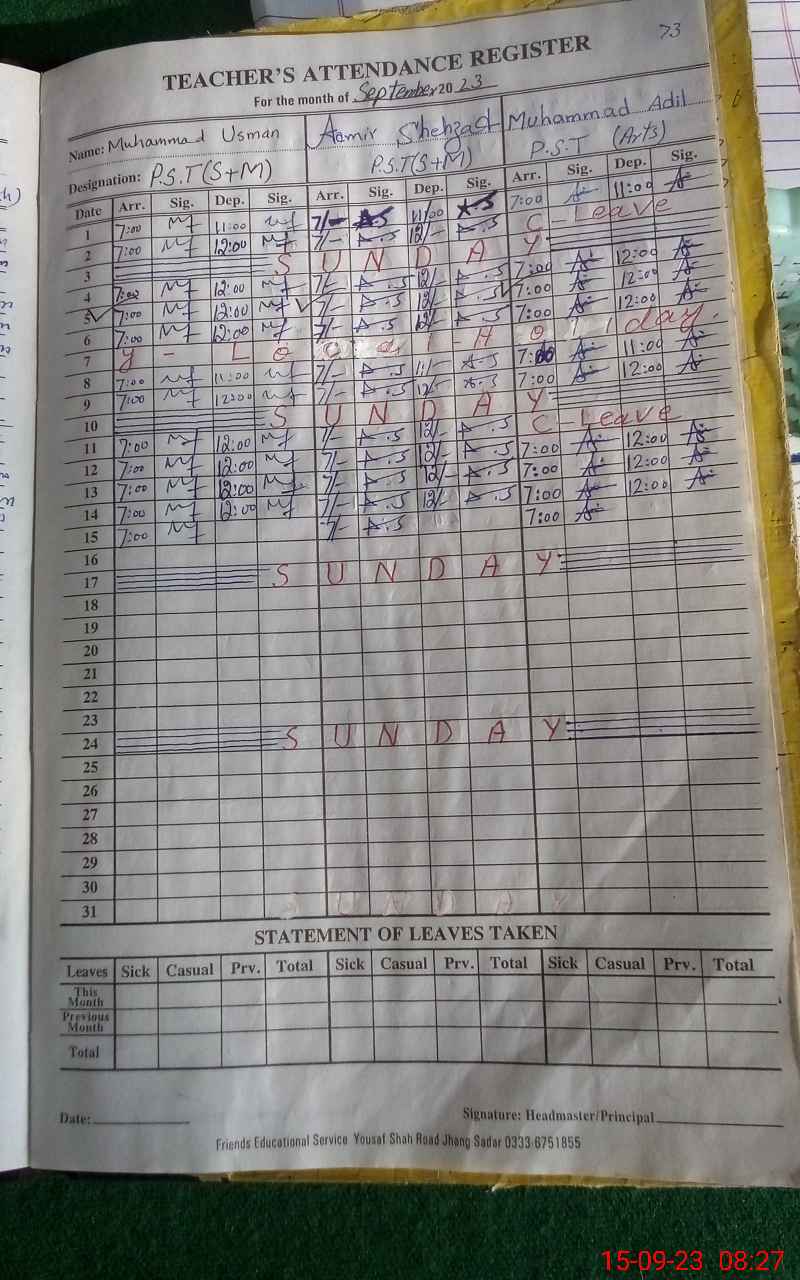 73
TEACHER'S ATTENDANCE REGISTER
For the month of September 2023
Name: Muhammad Usman Aamir Shehzad Muhammad Adil
Designation: P.S.T (S+M) P.S.T (S+M) P.S.T (Arts)
Date Arr. Sig. Dep. Sig. Arr. Sig. Dep. Sig. Arr. Sig. Dep. Sig.
1 7:00 11:00 7/- A.S 11/00 A.S 7:00 11:00
2 7:00 12:00 7/- A.S 12/- A.S C-Leave
3 SUNDAY
4 7:00 12:00 7/- A.S 12/- A.S 7:00 12:00
5 7:00 12:00 7/- A.S 12/- A.S 7:00 12:00
6 7:00 12:00 7/- A.S 12/- A.S 7:00 12:00
7 Local-Holiday.
8 7:00 11:00 7/- A.S 11/- A.S 7:00 11:00
9 7:00 12:00 7/- A.S 12/- A.S 7:00 12:00
10 SUNDAY
11 7:00 12:00 7/- A.S 12/- A.S C-Leave
12 7:00 12:00 7/- A.S 12/- A.S 7:00 12:00
13 7:00 12:00 7/- A.S 12/- A.S 7:00 12:00
14 7:00 12:00 7/- A.S 12/- A.S 7:00 12:00
15 7:00 7/- A.S 7:00
16
17 SUNDAY
18
19
20
21
22
23
24 SUNDAY
25
26
27
28
29
30
31 SUNDAY
STATEMENT OF LEAVES TAKEN
Leaves Sick Casual Prv. Total Sick Casual Prv. Total Sick Casual Prv. Total
This Month
Previous Month
Total
Date:
Signature: Headmaster/Principal
Friends Educational Service Yousaf Shah Road Jhang Sadar 0333-6751855
15-09-23 08:27